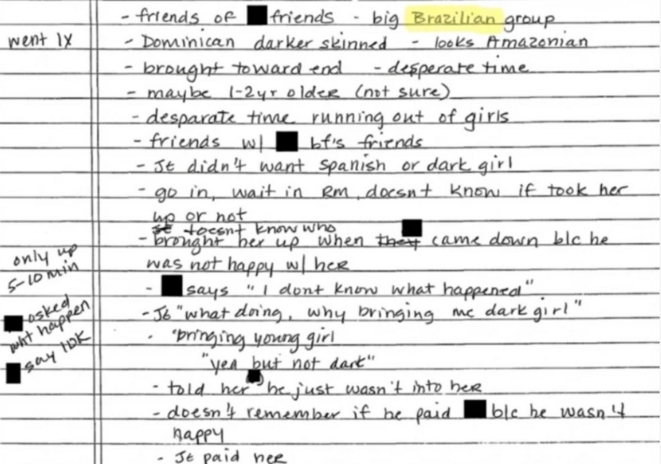 - friends of friends - big Brazilian group
went 1x
- Dominican darker skinned - looks Amazonian
- brought toward end - desperate time
- maybe 1-2yr older (not sure)
- desparate time running out of girls
- friends w/ bf's friends
- Je didn't want spanish or dark girl
- go in, wait in Rm, doesnt know if took her
up or not
doesnt know who
- brought her up when they came down b/c he
was not happy w/ her
only up
5-10 min
- says "I dont know what happened"
asked
wht happen
- Je "what doing, why bringing me dark girl"
- "bringing young girl
say IDK
"yea but not dark"
- told her he just wasn't into her
- doesn't remember if he paid b/c he wasn't
happy
- Je paid her